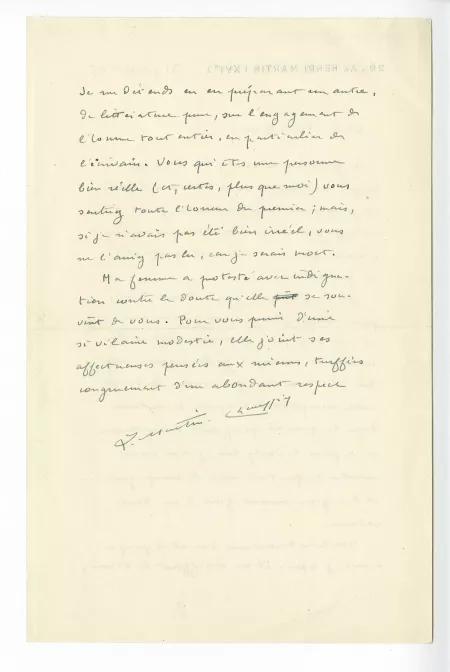 Je me défends en en préparant un autre,
de littérature pure, sur l'engagement de
l'homme tout entier, en particulier de
l'écrivain. Vous qui êtes une personne
bien réelle (et, certes, plus que moi) vous
sentez toute l'horreur du premier ; mais,
si je n'avais pas été bien irréel, vous
ne l'auriez pas lu, car je serais mort.
Ma femme a protesté avec indigna-
tion contre le doute qu'elle se sou-
vînt de vous. Pour vous punir d'une
si vilaine modestie, elle joint ses
affectueuses pensées aux miennes, truffées
congrument d'un abondant respect
L. Martin-Chauffier